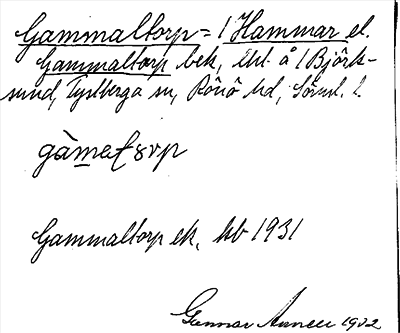 Gammaltorp = 1 Hammar el.
Gammaltorp bek, å 1 Björk-
sund, Tystberga sn, Rönö hd, Sörml. l.
gàmeltɔrp
Gammaltorp ek, hb 1931
Gunnar 1932